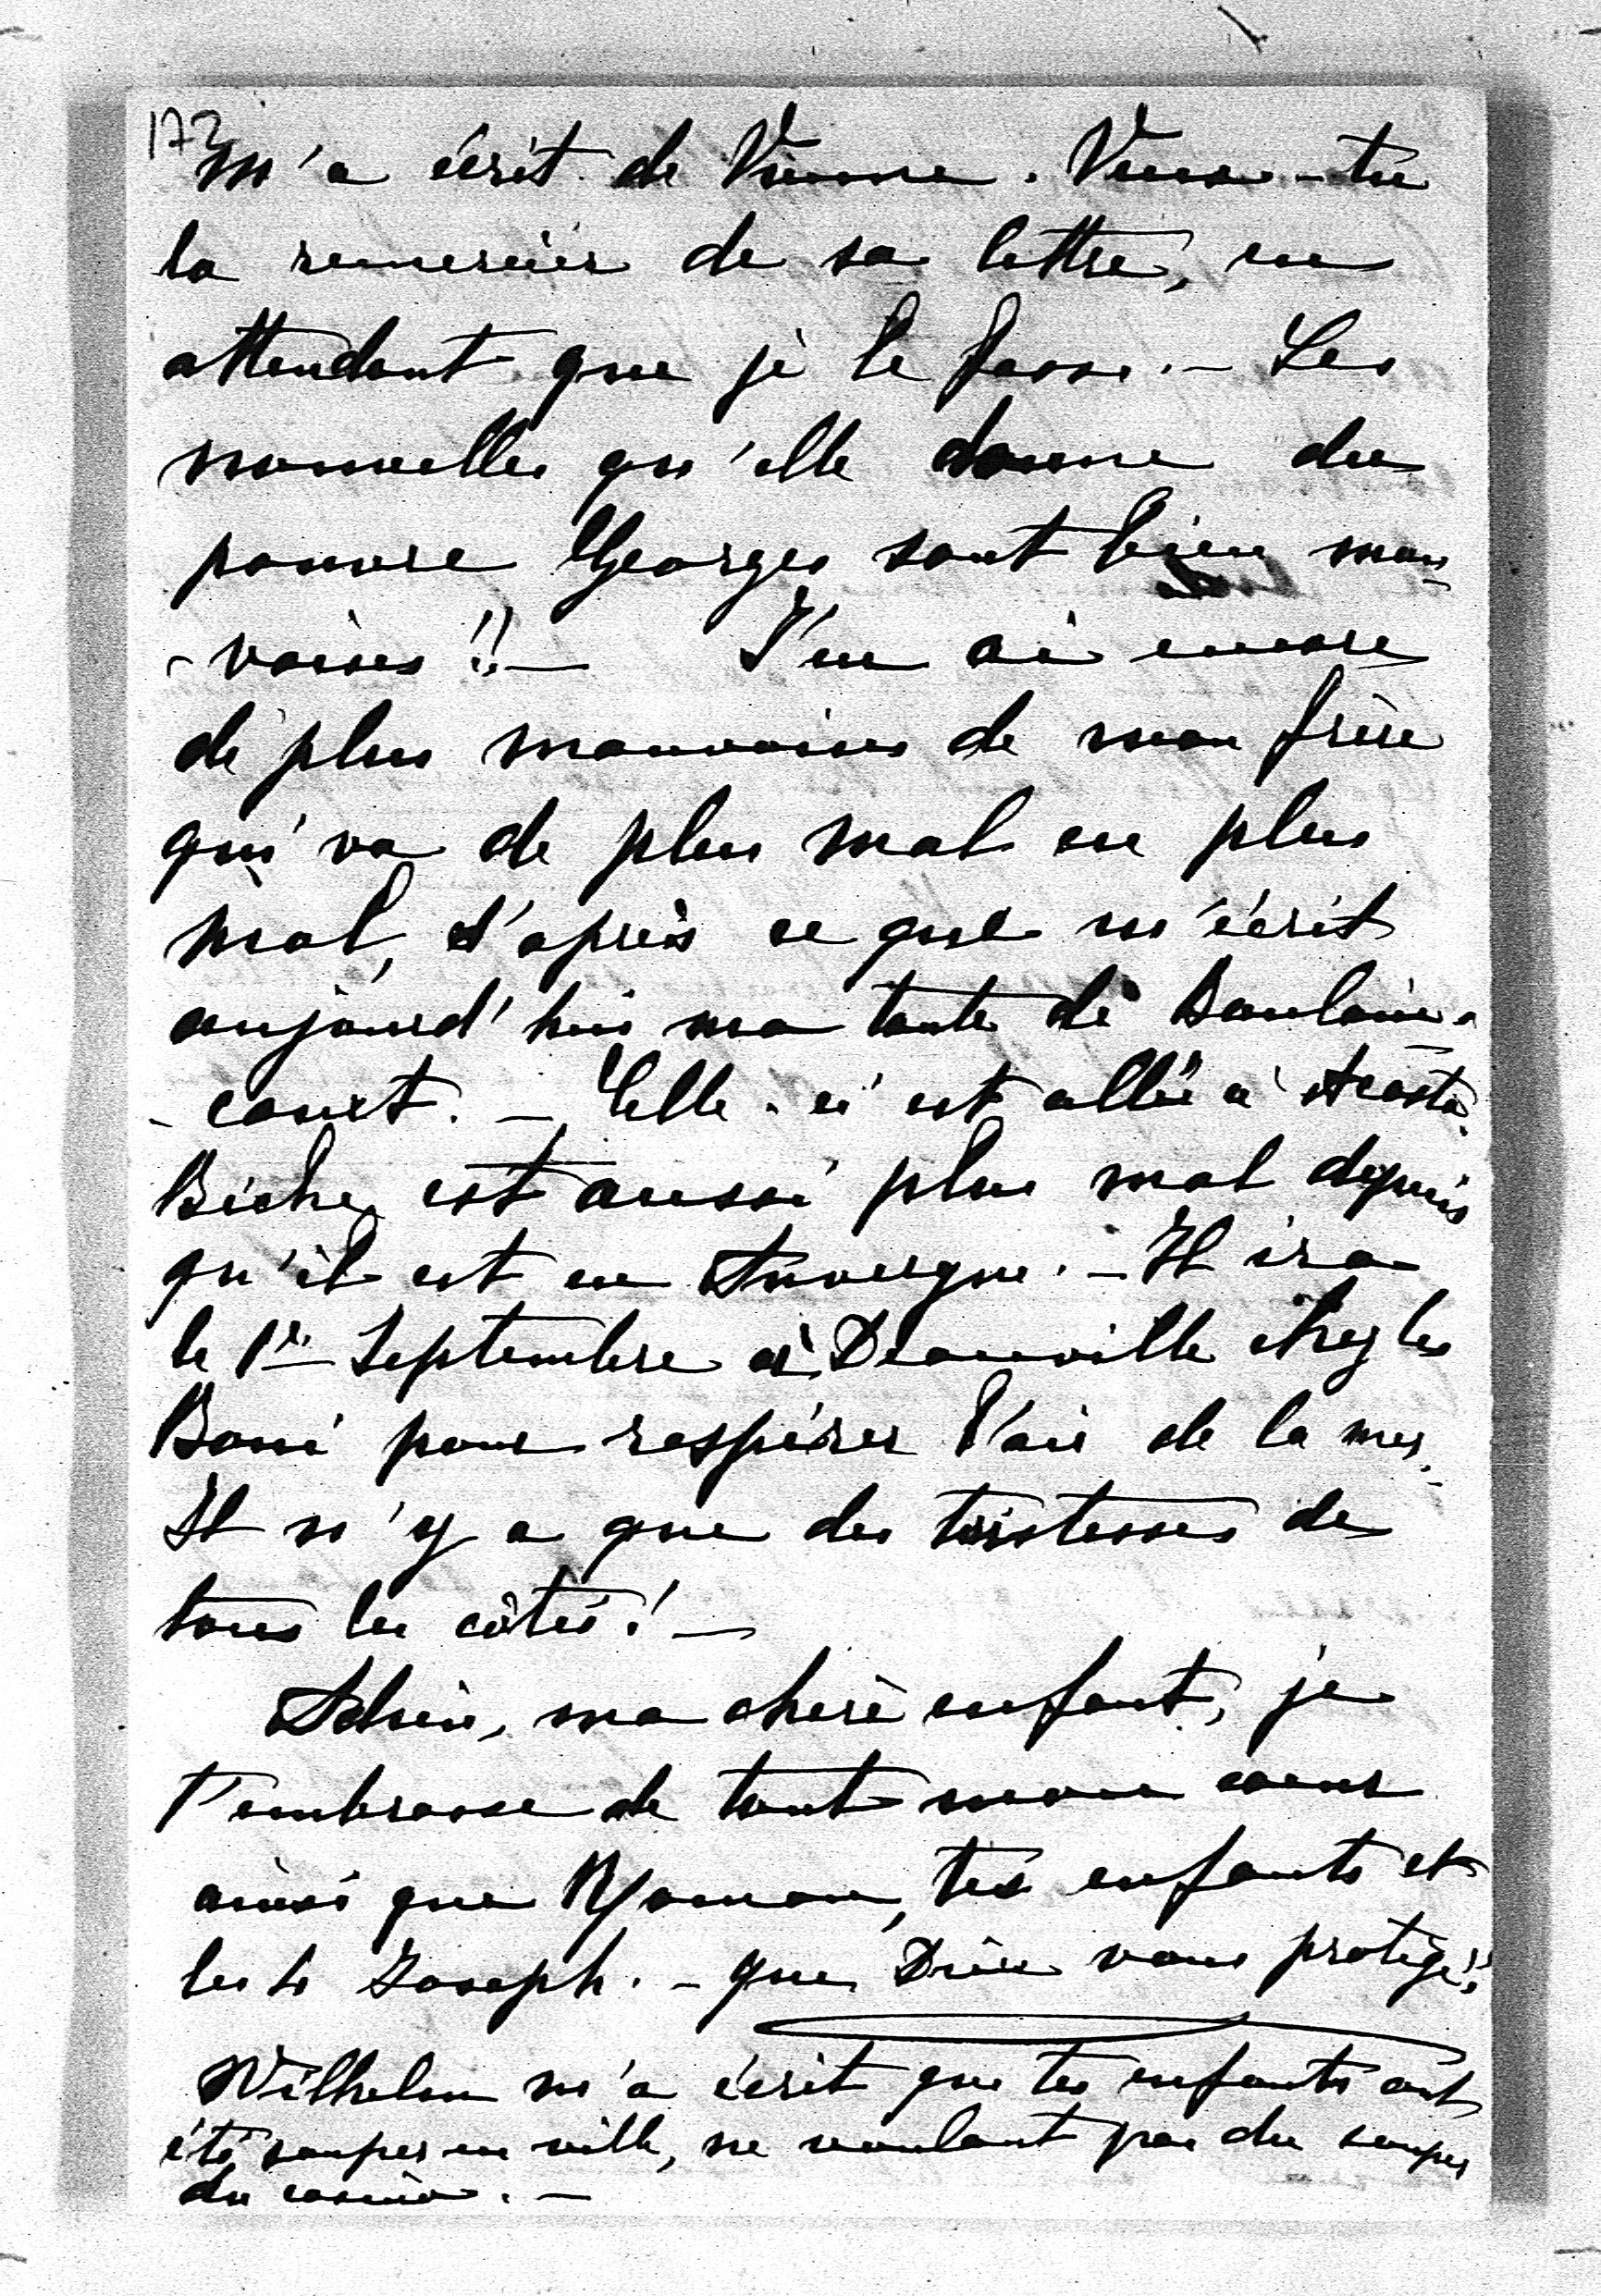 173
m'a écrit de Vienne. Veux-tu
la remercier de sa lettre, en
attendant que je le fasse. – Les
nouvelles qu'elle donne du
pauvre Georges sont bien mau-
-vaises !! – J'en ai encore
de plus mauvaises de mon frère
qui va de plus mal en plus
mal, d'après ce que m'écrit
aujourd'hui ma tante de Boulain-
-court. – Celle-ci est allée à Acosta.
Biche est aussi plus mal depuis
qu'il est en Auvergne. – Il ira
le 1er Septembre à Deauville chez les
Boni pour respirer l'air de la mer. –
Il n'y a que des tristesses de
tous les côtés ! –
Adieu, ma chère enfant, je
t'embrasse de tout mon coeur
ainsi que Maman, tes enfants et
les Joseph. – que Dieu vous protège !
Wilhelm m'a écrit que tes enfants ont
été souper en ville, ne voulant pas du souper
du casino. –